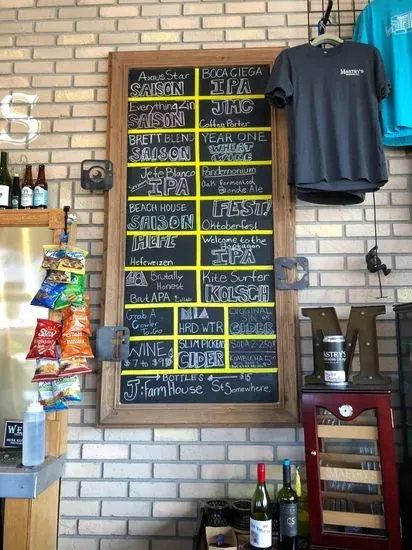 Axius Star
SAISON
BOCA CIEGA
IPA
Everything Zin
SAISON
JMC
Coffee Porter
BRETT BLEND
SAISON
YEAR ONE
WHEAT
WINE
Jefe Blanco
IPA
Pandemonium
Oak fermented
Blonde Ale
BEACH HOUSE
SAISON
FEST!
Oktoberfest
HEFE
Hefeweizen
Welcome to the
IPA
Brutally
Honest
Brut APA
Kite Surfer
KOLSCH
Grab A
Crowler
To Go
MIA
HRD WTR
ORIGINAL
CIDER
WINE
SLIM PICKENS
CIDER
KOMBUCHA
SODA 2.50
BOTTLES
$15
J: Farm House
St: Somewhere
MASTRY'S
S
M
MASTRY'S